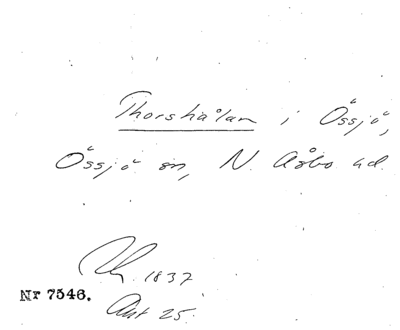 Thorshålan i Össjö,
Össjö sn, N. Åsbo hd
1837
Nr 7546.
Akt 25.